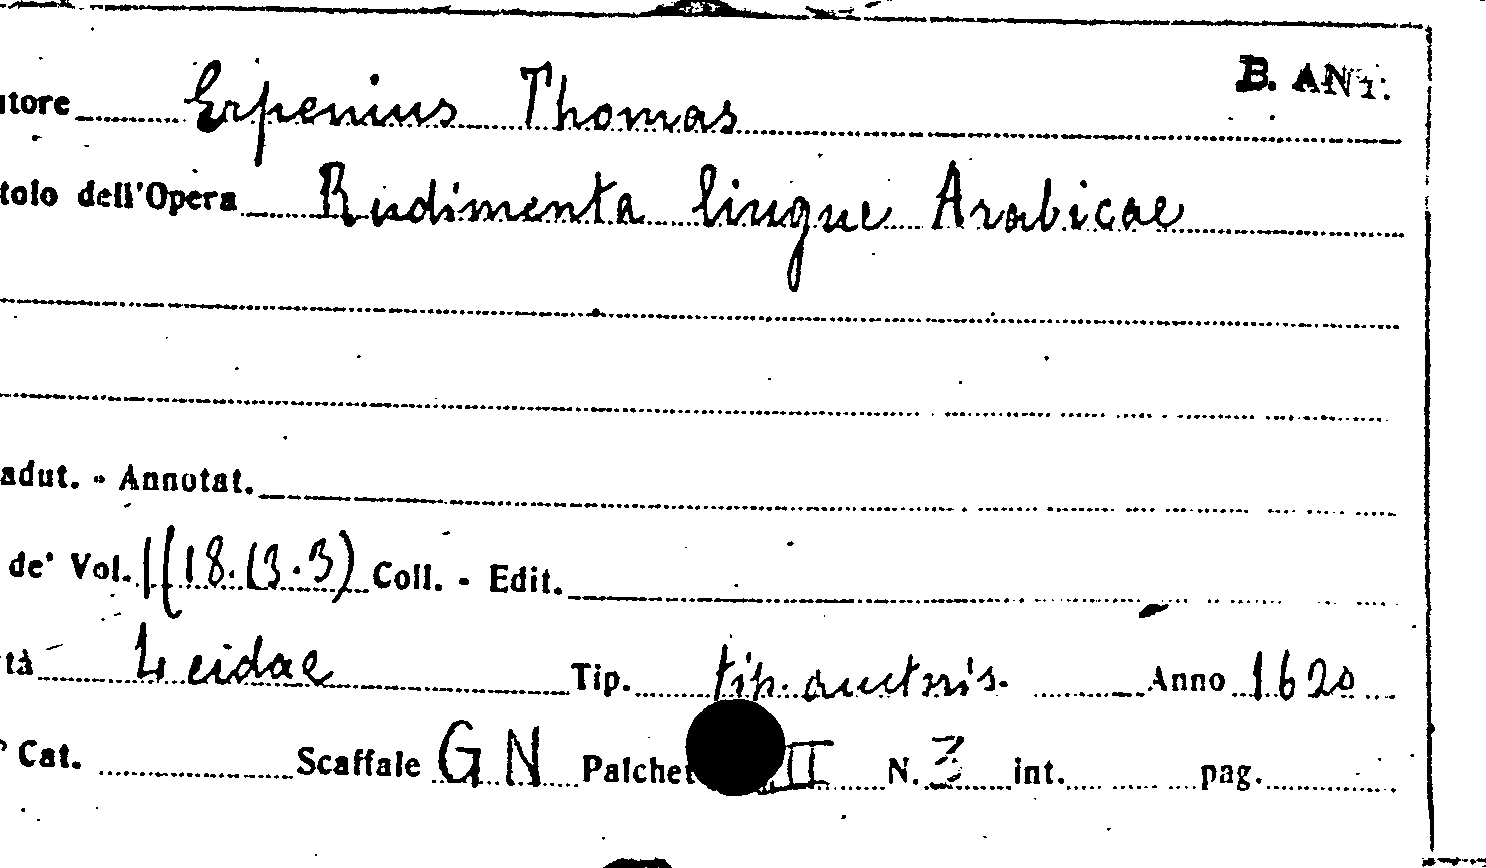 B. ANT.
utore Erpenius Thomas
tolo dell'Opera Rudimenta lingue Arabicae
adut. - Annotat.
de' Vol. 1 (18.13.3) Coll. - Edit.
tà Leidae Tip. tip. auctoris. Anno 1620
Cat. Scaffale GN Palchet II N. 3 int. pag.